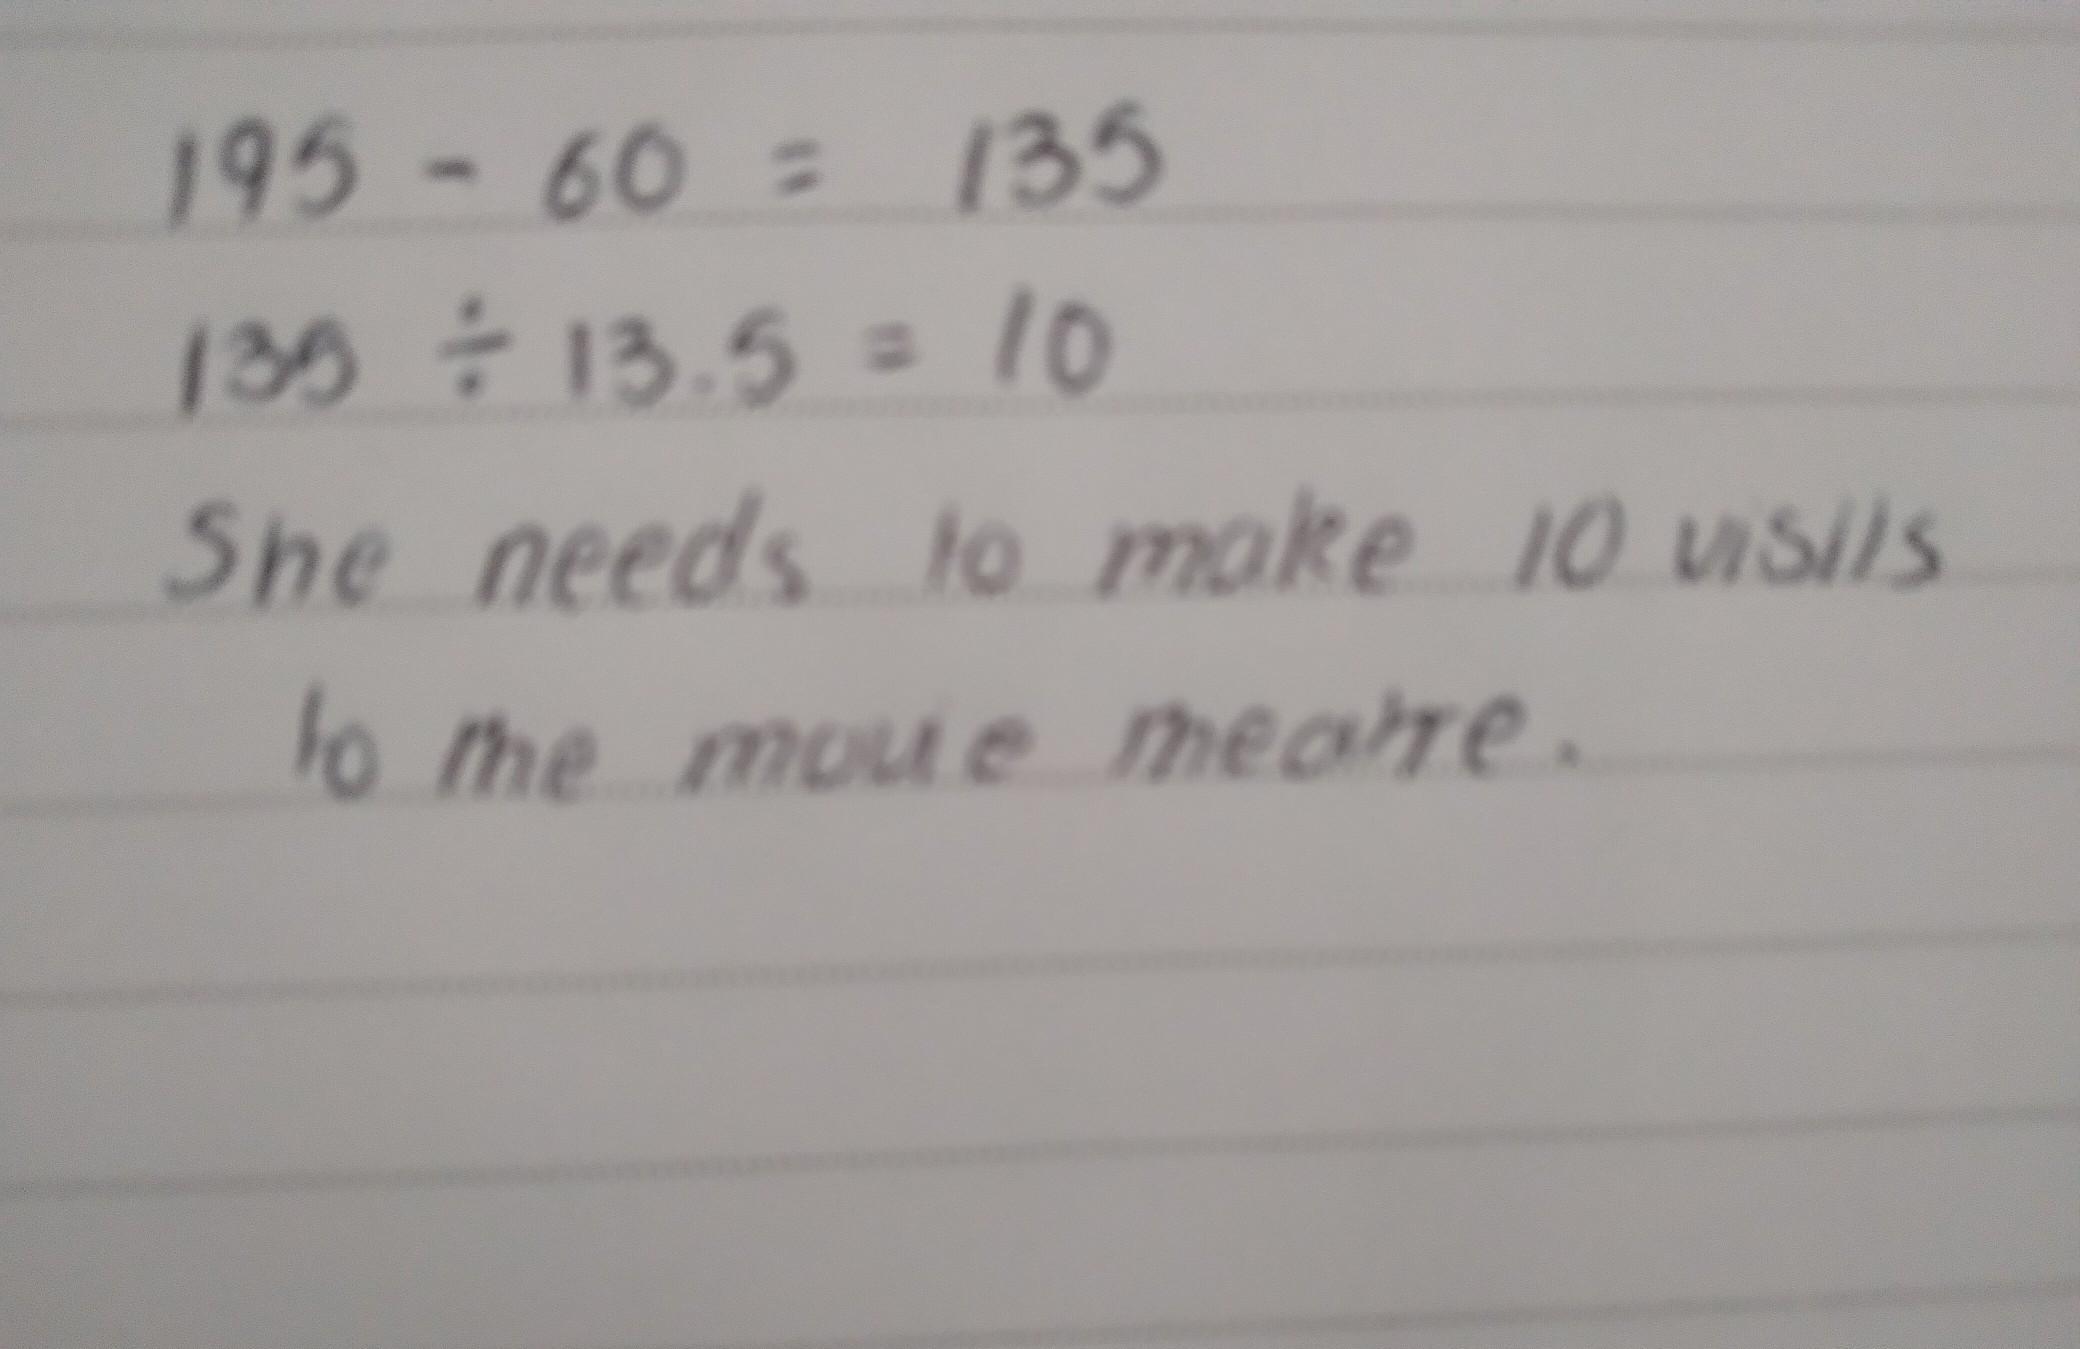 195 - 60 = 135
135 ÷ 13.5 = 10
She needs to make 10 visits
to the movie theatre.